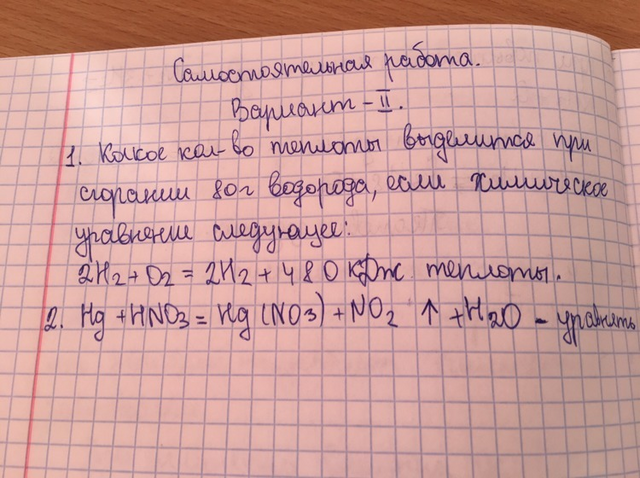 Самостоятельная работа.
Вариант - II.
1. Какое кол-во теплоты выделится при
сгорании 80г водорода, если химическое
уравнение следующее:
2H2 + O2 = 2H2 + 480 кДж теплоты.
2. Hg + HNO3 = Hg(NO3) + NO2 ↑ + H2O - уравнять